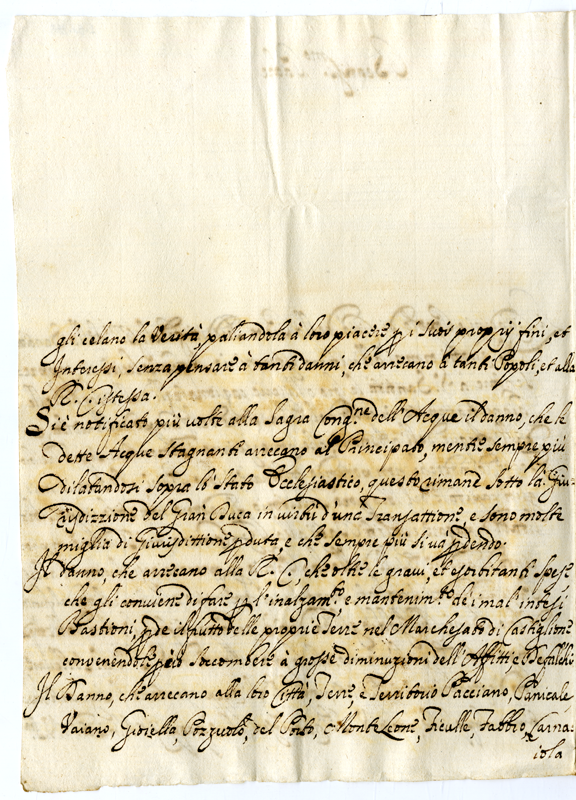 gli celano la Verità paliandola à loro piacere p i suoi proprij fini, et
Interessi, senza pensare à tanti danni, che arrecano à tanti Popoli, et alla
R. C. istessa.
Si è notificato più volte alla Sagra Cong.ne dell'Acque il danno, che le
dette Acque Stagnanti arrecano al Principato, mentre sempre più
dilatandosi sopra lo Stato Ecclesiastico, questo rimane sotto la Giu-
risdizzione del Gran Duca in virtù d'una Transattione, e sono molte
miglia di Giurisdittione pduta, e che sempre più si và pdendo.
Il Danno, che arrecano alla R. C. che oltre le gravi, et esorbitanti spese
che gli conviene di fare p l'inalzam.to e mantenim.to de i mal'intesi
Bastioni, pde il frutto delle proprie Terre nel Marchesato di Castiglione
convenendole però soccombere à grosse diminuzioni dell'Affitti e Defalchi
Il Danno, che arrecano alla loro Città, Terre, e Territorio Pacciano, Panicale
Vaiano, Gioiella, Pozzuolo, del Porto, Monte Leone, Ficulle, Fabbro, Carna-
iola